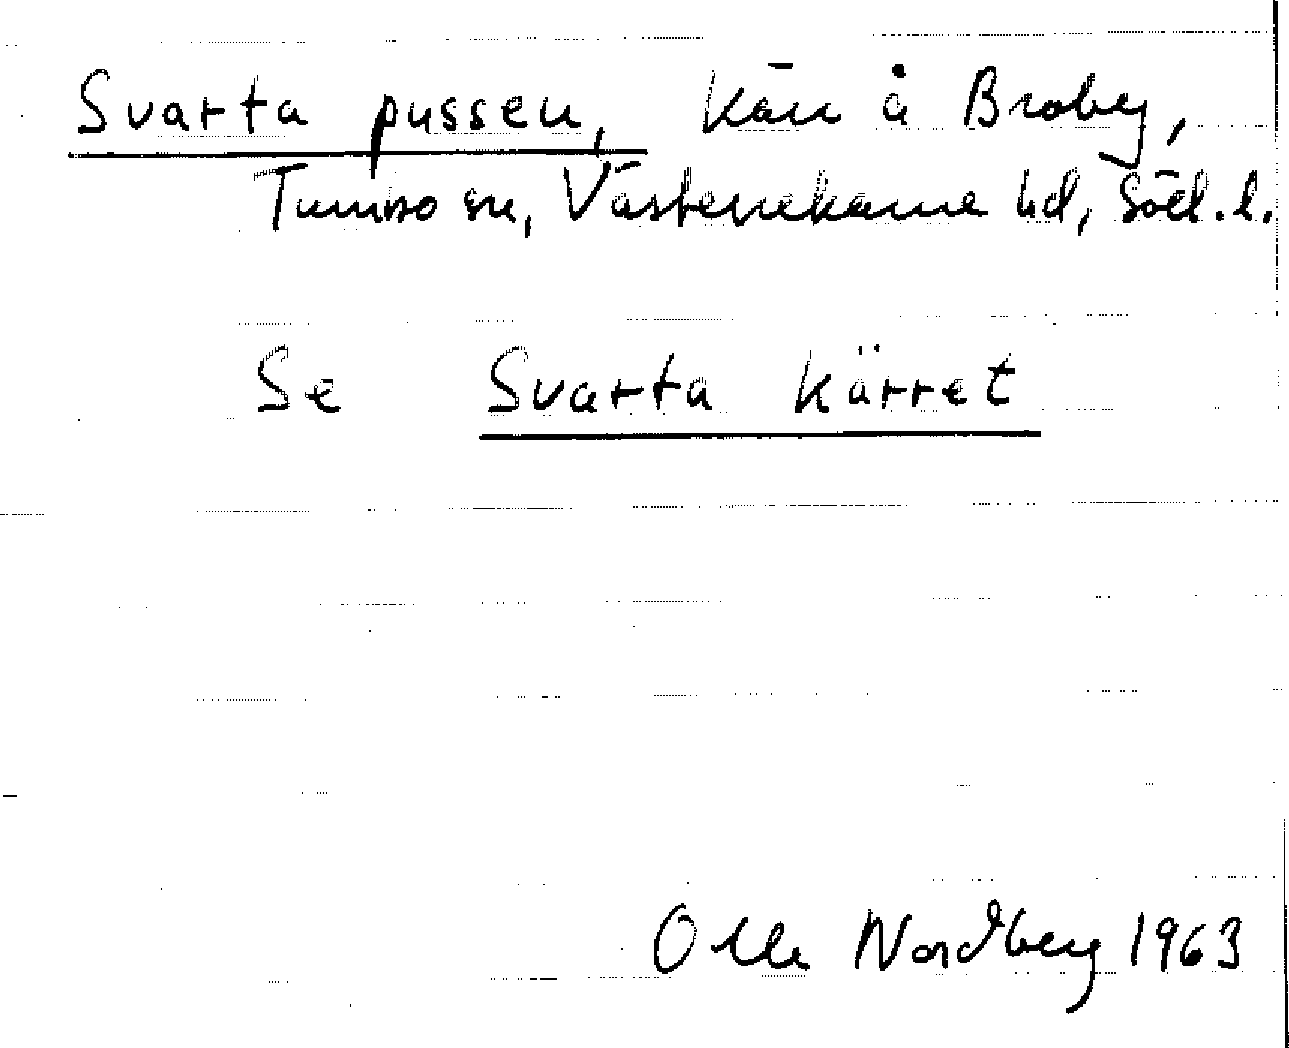 Svarta pussen, Kärr å Broby,
Tumbo sn, Västerrekarne hd, Södl. l.
Se Svarta kärret
Olle Nordberg 1963